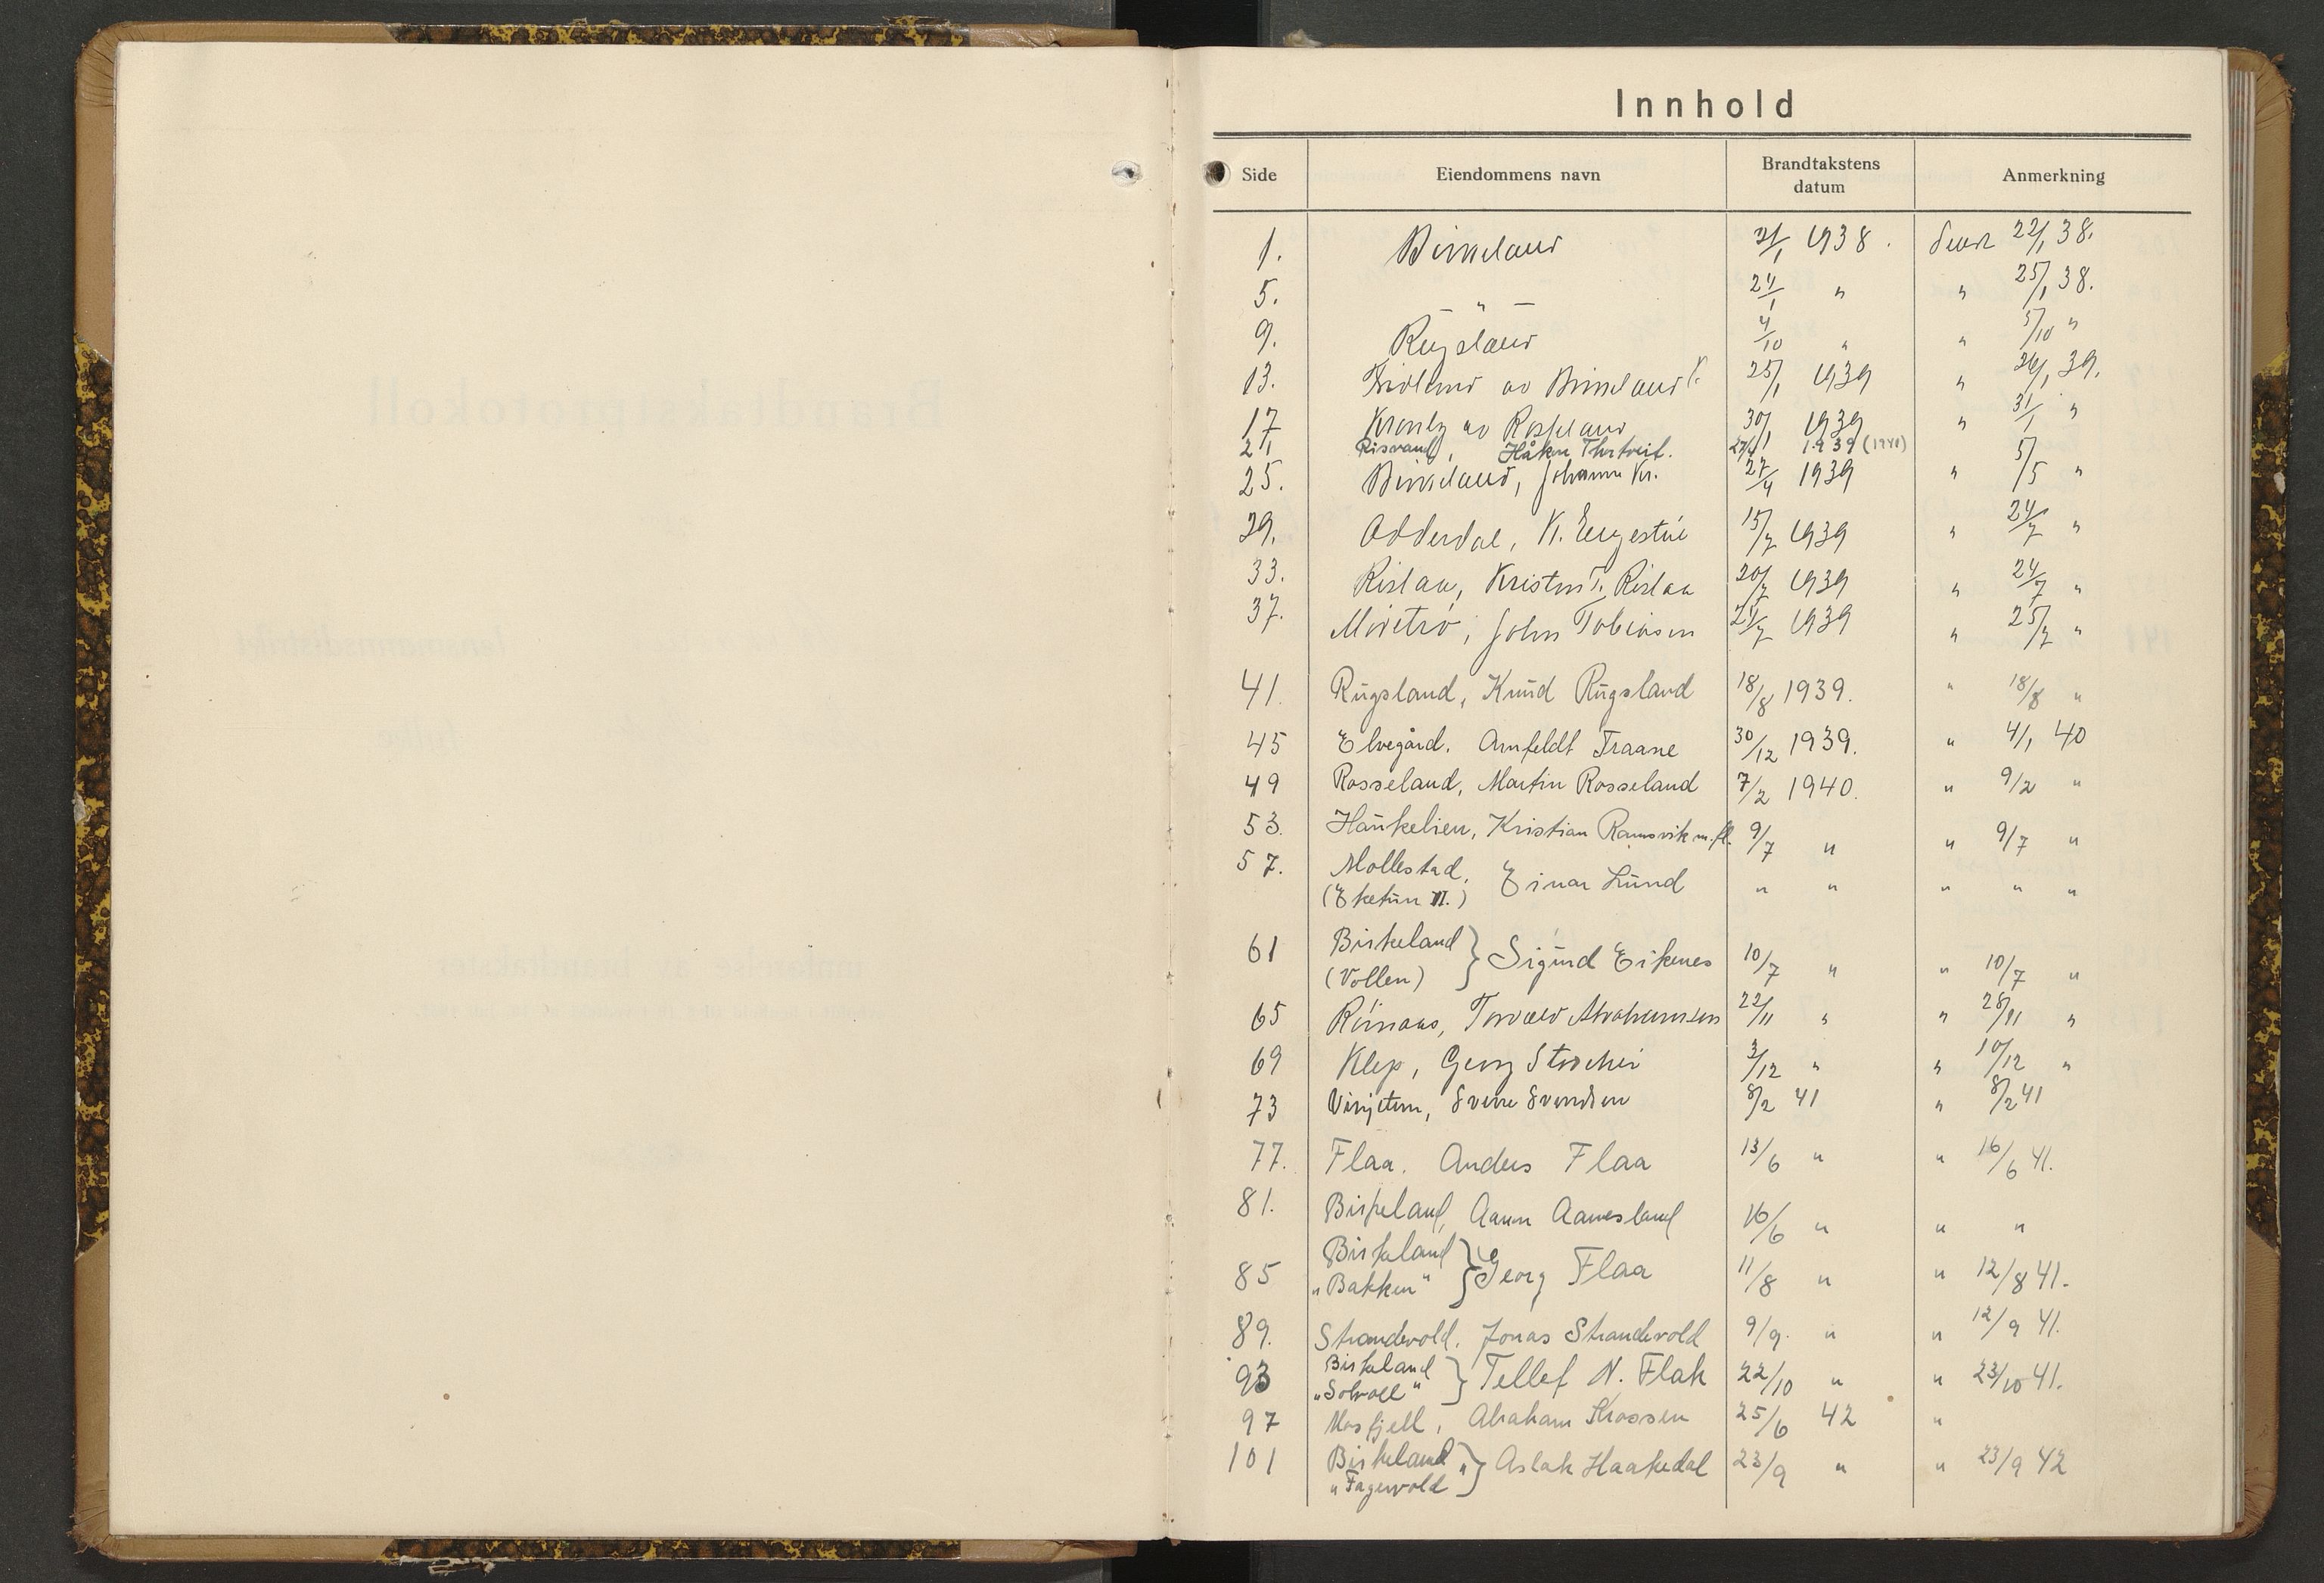 Innhold
Side Eiendommens navn Brandtakstens datum Anmerkning
1. Birkeland 21/1 1938. Sendt 22/1 38.
5. — " — 24/1 " " 25/1 38.
9. Rugsland 4/10 " " 5/10 "
13. av Birkeland 25/1 1939 " 26/1 39.
17 Kronly av Rosseland 30/1 1939 " 31/1 "
21 Risvand, Håkon 27/4 1939 (1940)
25. Birkeland, Johann Kr. 27/4 1939 " 5/5 "
29. Odderdal, K. Engestøl 15/7 1939 " 24/7 "
33. Rislaa, Kristen T. Rislaa 20/7 1939 " 24/7 "
37. Moretrø, John Tobiasen 24/7 1939 " 25/7 "
41. Rugsland, Knud Rugsland 18/8 1939. " 18/8 "
45 Elvegård. Arnfeldt Traane 30/12 1939. " 4/1 40
49 Rosseland, Martin Rosseland 7/2 1940. " 9/2 "
53. Haukelien, Kristian Ramsvik m.fl. 9/7 " " 9/7 "
57. Mollestad, Einar Lund " " " " "
(Eketun II.)
61 Birkeland } Sigurd Eikenes 10/7 " " 10/7 "
(Vollen)
65 Rismaas, Torvald Abrahamsen 22/11 " " 28/11 "
69 Klep, Georg 3/12 " " 10/12 "
73 Sverre Svendsen 8/2 41 " 8/2 41
77. Flaa. Anders Flaa 13/6 " " 16/6 41.
81. Birkeland, Aanen Aanesland 16/6 " " "
85 Birkeland „Bakken“ } Georg Flaa 11/8 " " 12/8 41.
89. Strandvold. Jonas Strandvold 9/9. " " 12/9 41.
93 Birkeland „Solvoll“ } Tellef N. Flak 22/10 " " 23/10 41.
97 Mosfjell, Abraham Krossen 25/6 42 "
101 Birkeland „Fagervold“ } Aslak Haakedal 23/9 " " 23/9 42